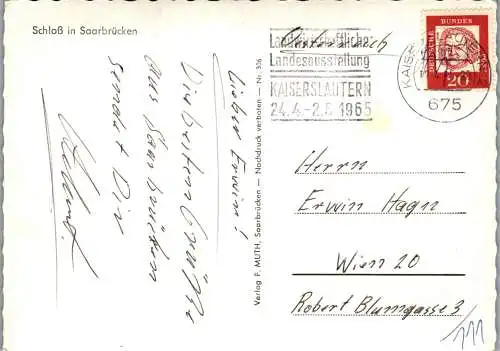 Schloß in Saarbrücken
Lieber Erwin!
Die besten Grüße
aus Saarbrücken
sendet Dir
Verlag F. MUTH, Saarbrücken — Nachdruck verboten — Nr. 336
Landwirtschaftliche
Landesausstellung
KAISERSLAUTERN
24.4.-2.5.1965
675
DEUTSCHE BUNDESPOST
20
Herrn
Erwin Hagn
Wien 20
Robert Blumgasse 3